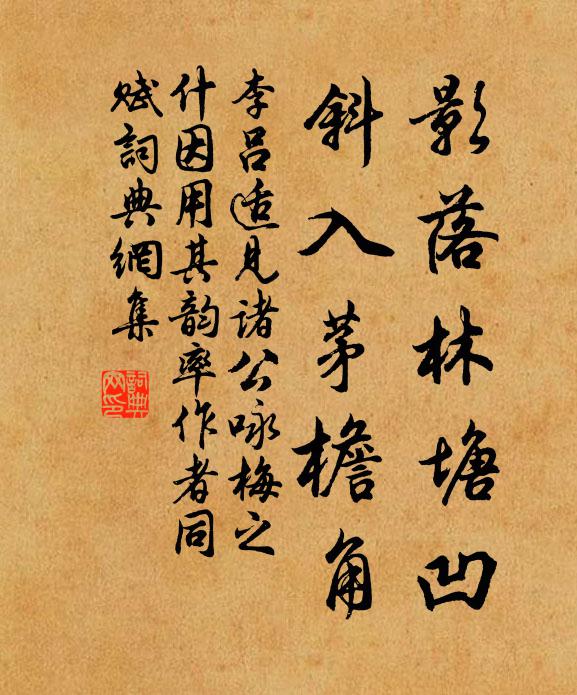 影落林塘凹
斜入茅檐角
李吕适见诸公咏梅之
什因用其韵率作者同
赋词典網集
詞典網印